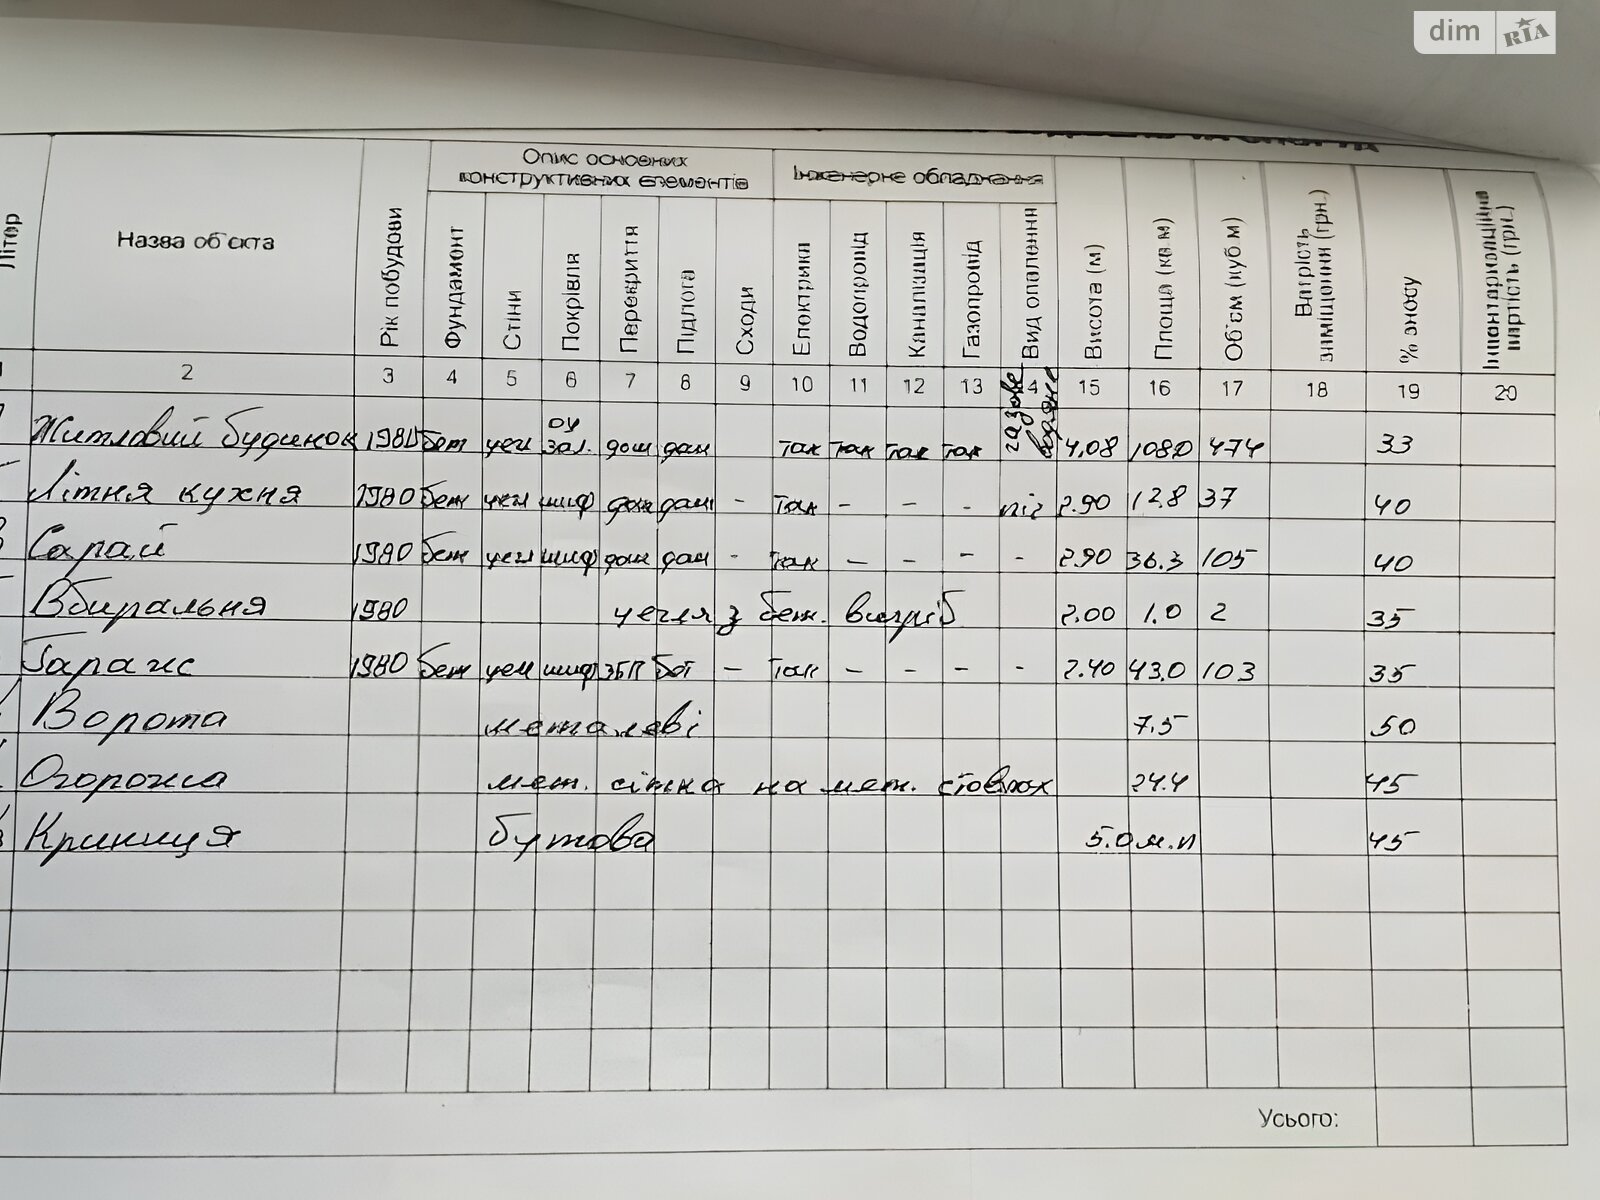 dim RIA
Опис основних конструктивних елементів
Інженерне обладнання
Літер
Назва об'єкта
Рік побудови
Фундамент
Стіни
Покрівля
Перекриття
Підлога
Сходи
Електрика
Водопровід
Каналізація
Газопровід
Вид опалення
Висота (м)
Площа (кв.м)
Об'єм (куб.м)
Вартість заміщення (грн.)
% зносу
Інвентаризаційна вартість (грн.)
2 3 4 5 6 7 8 9 10 11 12 13 4 15 16 17 18 19 20
Житловий будинок 1980 бет цегл дощ дощ так так так так газове водяне 4,08 474 33
Літня кухня 1980 бет цегл шиф дощ дощ - так - - - піч 2.90 12.8 37 40
Сарай 1980 бет цегл шиф дощ дощ - так - - - - 2.90 36.3 105 40
Вбиральня 1980 цегля з бет. вигріб 2.00 1.0 2 35
Гараж 1980 бет цегл шиф ЗБП бет - так - - - - 2.40 43.0 103 35
Ворота металеві 7.5 50
Огорожа мет. сітка на мет. стовпах 24.4 45
Криниця бутова 5.0 м.п 45
Усього: